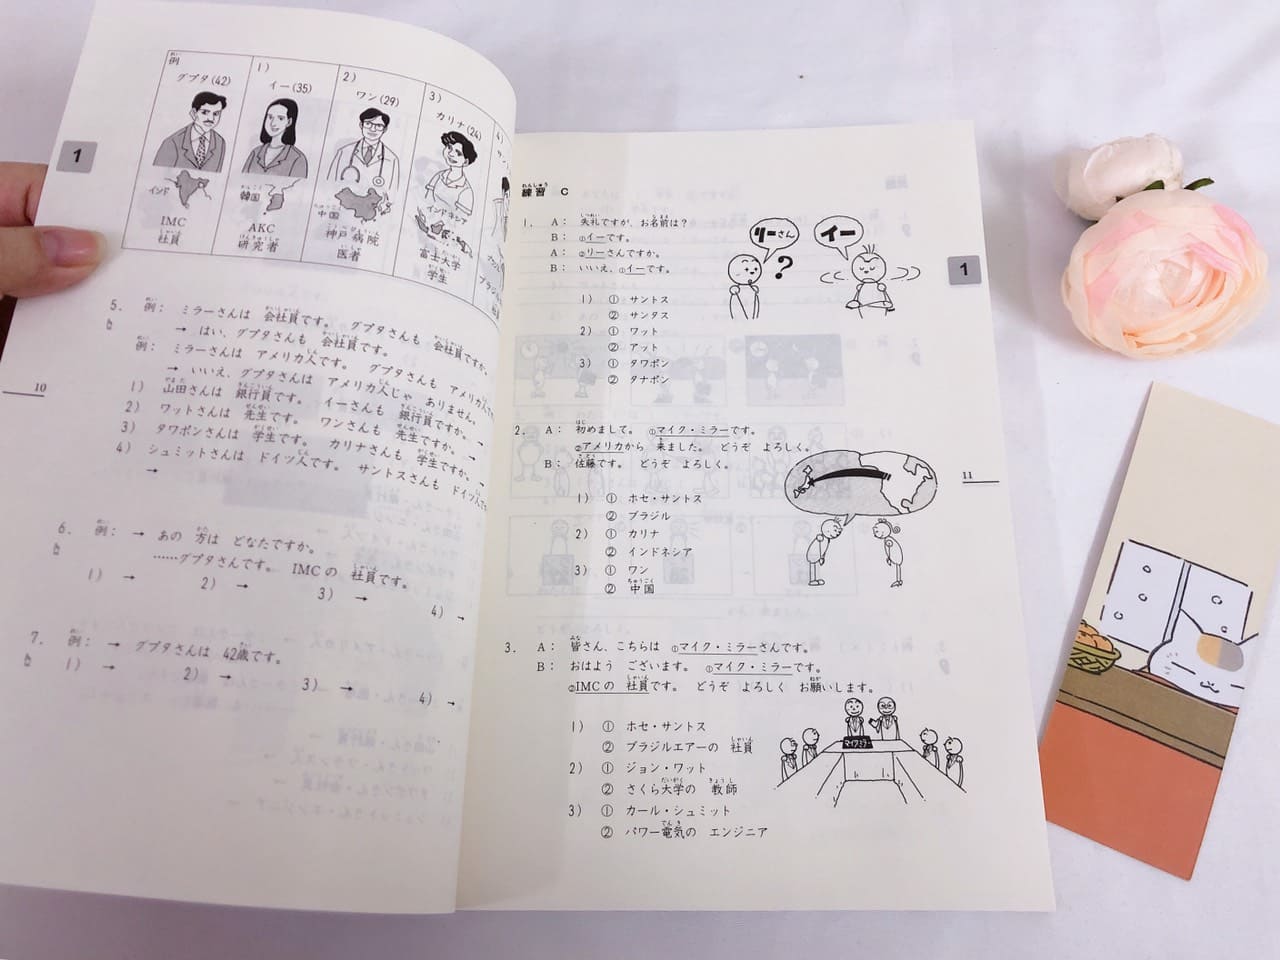 1
例
グプタ(42)
インド
IMC
社員
1)
イー(35)
韓国
AKC
研究者
2)
ワン(29)
中国
神戸病院
医者
3)
カリナ(24)
インドネシア
富士大学
学生
4)
5. 例： ミラーさんは 会社員です。 グプタさんも 会社員ですか。
→ はい、グプタさんも 会社員です。
例： ミラーさんは アメリカ人です。 グプタさんも アメリカ
→ いいえ、グプタさんは アメリカ人じゃ ありません。
1) 山田さんは 銀行員です。 イーさんも 銀行員ですか。 →
2) ワットさんは 先生です。 ワンさんも 先生ですか。 →
3) タワポンさんは 学生です。 カリナさんも 学生ですか。 →
4) シュミットさんは ドイツ人です。 サントスさんも ドイツ人
→
6. 例： → あの 方は どなたですか。
……グプタさんです。 IMCの 社員です。
1) → 2) → 3) → 4) →
7. 例： → グプタさんは 42歳です。
1) → 2) → 3) → 4) →
10
練習 C
1. A： 失礼ですが、お名前は？
B： ①イーです。
A： ②リーさんですか。
B： いいえ、①イーです。
リーさん
？
イー
1) ① サントス
② サンタス
2) ① ワット
② アット
3) ① タワポン
② タナポン
1
2. A： 初めまして。 ①マイク・ミラーです。
②アメリカから 来ました。 どうぞ よろしく。
B： 佐藤です。 どうぞ よろしく。
1) ① ホセ・サントス
② ブラジル
2) ① カリナ
② インドネシア
3) ① ワン
② 中国
11
3. A： 皆さん、こちらは ①マイク・ミラーさんです。
B： おはよう ございます。 ①マイク・ミラーです。
②IMCの 社員です。 どうぞ よろしく お願いします。
1) ① ホセ・サントス
② ブラジルエアーの 社員
2) ① ジョン・ワット
② さくら大学の 教師
3) ① カール・シュミット
② パワー電気の エンジニア